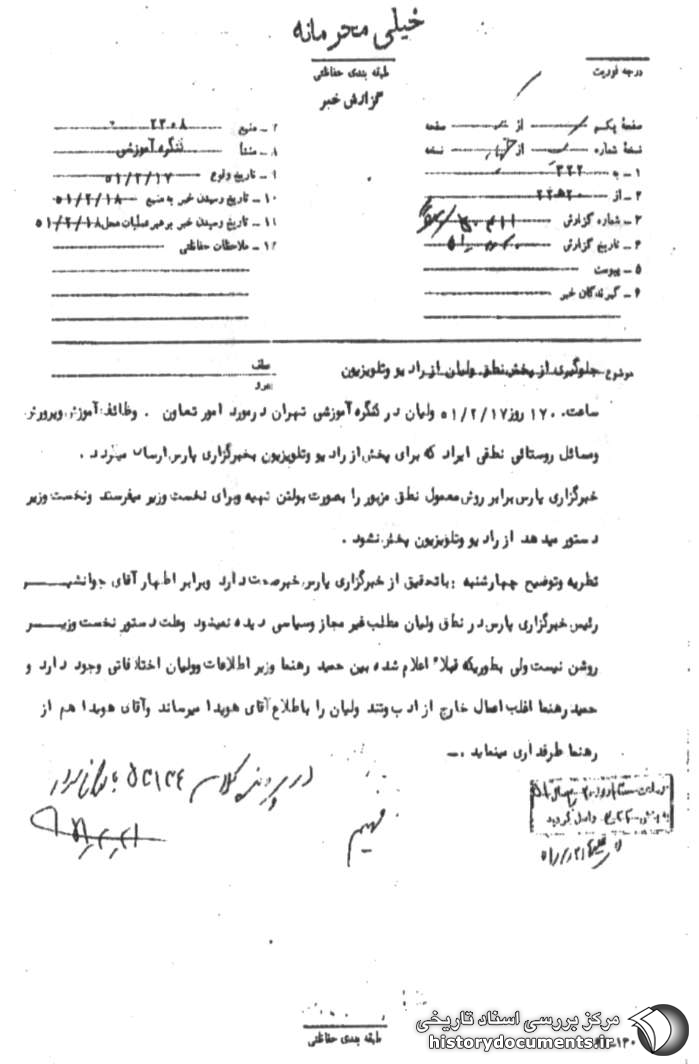 خیلی محرمانه
طبقه بندی حفاظتی
گزارش خبر
درجه فوریت
صفحهٔ یکم از صفحه
نسخهٔ شماره از چهار نسخه
۱ ـ به ۳۲۲
۲ ـ از ۲۲ هـ ۲۰
۳ ـ شماره گزارش
۴ ـ تاریخ گزارش
۵ ـ پیوست
۶ ـ گیرندگان خبر
۷ ـ منبع ۲۳۰۸
۸ ـ منشأ کنگره آموزشی
۹ ـ تاریخ وقوع ۵۱/۲/۱۷
۱۰ ـ تاریخ رسیدن خبر به منبع ۵۱/۲/۱۸
۱۱ ـ تاریخ رسیدن خبر برهبر عملیات محل ۵۱/۲/۱۸
۱۲ ـ ملاحظات حفاظتی
موضوع جلوگیری از پخش نطق ولیان از رادیو وتلویزیون
عطف
پیرو
ساعت ۱۷۰۰ روز ۵۱/۲/۱۷ ولیان در کنگره آموزشی تهران درمورد امور تعاون . وظائف آموزش وپرورش
ومسائل روستائی نطقی ایراد که برای پخش از رادیو وتلویزیون بخبرگزاری پارس ارسال میگردد .
خبرگزاری پارس برابر روش معمول نطق مزبور را بصورت بولتن تهیه وبرای نخست وزیر میفرستد ونخست وزیر
دستور میدهد از رادیو وتلویزیون پخش نشود .
نظریه وتوضیح چهارشنبه : باتحقیق از خبرگزاری پارس خبرصحت دارد وبرابر اظهار آقای جوانشیر
رئیس خبرگزاری پارس در نطق ولیان مطلب غیر مجاز وسیاسی دیده نمیشود وعلت دستور نخست وزیر
روشن نیست ولی بطوریکه قبلاً اعلام شده بین حمید رهنما وزیر اطلاعات وولیان اختلافاتی وجود دارد و
حمید رهنما اغلب اعمال خارج از ادب وتند ولیان را باطلاع آقای هویدا میرساند وآقای هویدا هم از
رهنما طرفداری مینماید .ـ
در پرونده کلاسه ۵۲۱۲۴ بایگانی شود
فهیم
طبقه بندی حفاظتی
مرکز بررسی اسناد تاریخی
historydocuments.ir